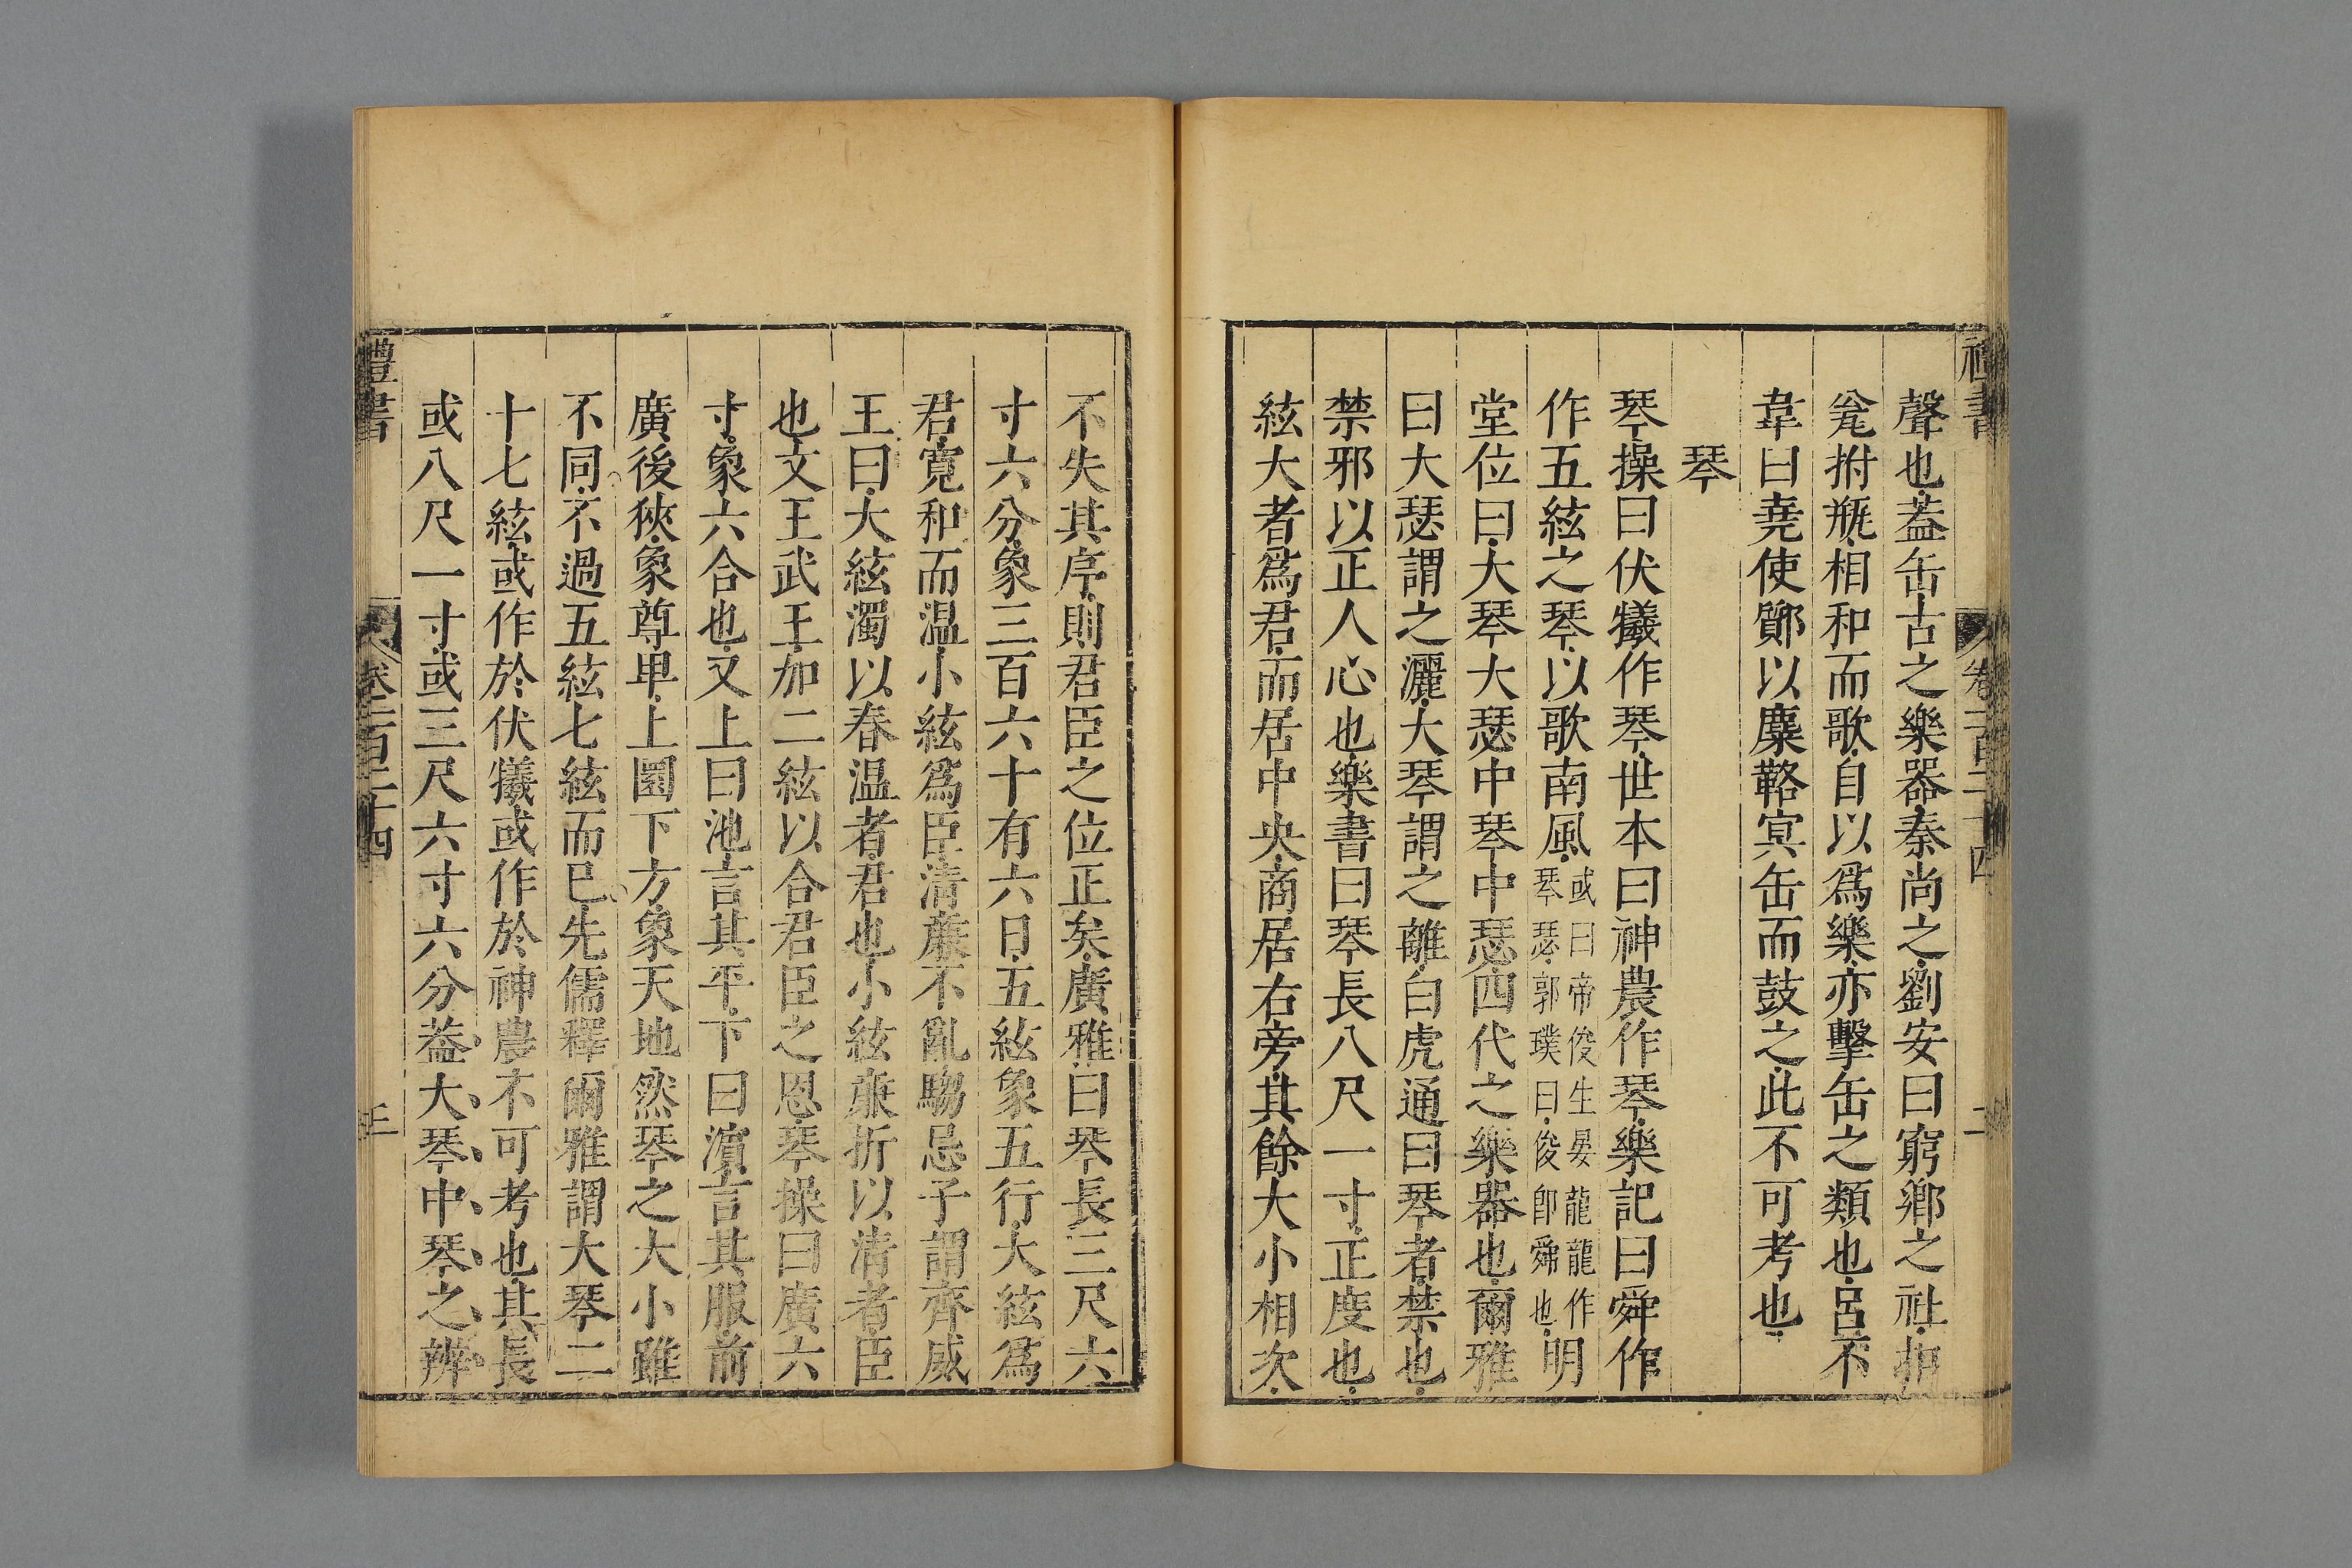 禮書
卷一百二十四
二
聲也蓋缶古之樂器秦尚之劉安曰窮鄉之社扣
瓮拊瓶相和而歌自以爲樂亦擊缶之類也呂不
韋曰堯使鄭以麋䩭冥缶而鼓之此不可考也
琴
琴操曰伏犧作琴世本曰神農作琴樂記曰舜作
作五絃之琴以歌南風或曰帝俊生晏龍龍作琴瑟郭璞曰俊卽舜也明
堂位曰大琴大瑟中琴中瑟四代之樂器也爾雅
曰大瑟謂之灑大琴謂之離白虎通曰琴者禁也
禁邪以正人心也樂書曰琴長八尺一寸正度也
絃大者爲君而居中央商居右旁其餘大小相次
不失其序則君臣之位正矣廣雅曰琴長三尺六
寸六分象三百六十有六日五絃象五行大絃爲
君寛和而溫小絃爲臣清廉不亂騶忌子謂齊威
王曰大絃濁以春溫者君也小絃廉折以清者臣
也文王武王加二絃以合君臣之恩琴操曰廣六
寸象六合也又上曰池言其平下曰濵言其服前
廣後狹象尊卑上圜下方象天地然琴之大小雖
不同不過五絃七絃而已先儒釋爾雅謂大琴二
十七絃或作於伏犧或作於神農不可考也其長
或八尺一寸或三尺六寸六分蓋大琴中琴之辨
禮書
卷一百二十四
三